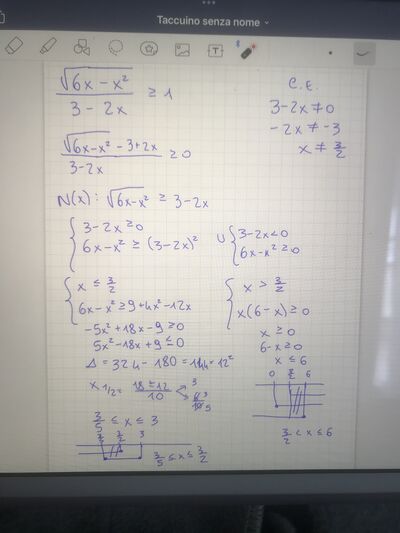 Taccuino senza nome
√(6x - x²) / (3 - 2x) ≥ 1
C.E.
3-2x ≠ 0
-2x ≠ -3
x ≠ 3/2
(√(6x-x²) - 3+2x) / (3-2x) ≥ 0
N(x): √(6x-x²) ≥ 3-2x
{ 3-2x ≥ 0
6x-x² ≥ (3-2x)²
∪ { 3-2x < 0
6x-x² ≥ 0
{ x ≤ 3/2
6x-x² ≥ 9+4x²-12x
-5x²+18x-9 ≥ 0
5x²-18x+9 ≤ 0
Δ = 324-180 = 144 = 12²
x 1/2 = (18±12)/10
3
6/10 3/5
3/5 ≤ x ≤ 3
3/5 3/2 3
3/5 ≤ x ≤ 3/2
{ x > 3/2
x(6-x) ≥ 0
x ≥ 0
6-x ≥ 0
x ≤ 6
0 3/2 6
3/2 < x ≤ 6